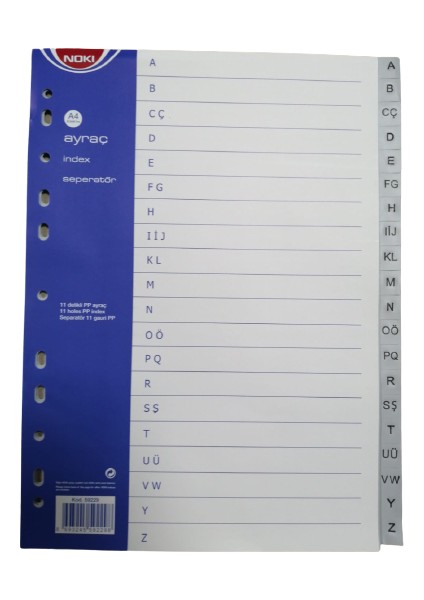 NOKI
A4
ayraç
index
seperatör
11 delikli PP ayraç
11 holes PP index
Separatör 11 gauri PP
A
B
CÇ
D
E
FG
H
IİJ
KL
M
N
OÖ
PQ
R
SŞ
T
UÜ
VW
Y
Z
A
B
CÇ
D
E
FG
H
IİJ
KL
M
N
OÖ
PQ
R
SŞ
T
UÜ
VW
Y
Z